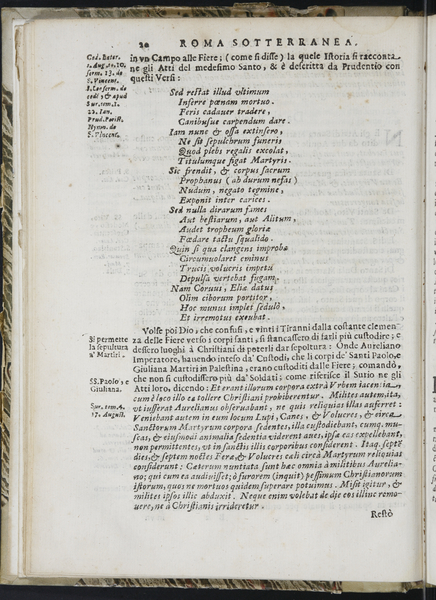 20 ROMA SOTTERRANEA.
in vn Campo alle Fiere; (come si disse) la quele Istoria si racconta
ne gli Atti del medesimo Santo, & è descritta da Prudentio con
questi Versi:
Sed restat illud vltimum
Inferre pœnam mortuo.
Feris cadauer tradere,
Canibusue carpendum dare.
Iam nunc & ossa extinxero,
Ne sit sepulchrum funeris
Quod plebs regalis excolat,
Titulumque figat Martyris.
Sic frendit, & corpus sacrum
Prophanus (ab durum nefas)
Nudum, negato tegmine,
Exponit inter carices.
Sed nulla dirarum fames
Aut bestiarum, aut Alitum,
Audet tropheum gloriæ
Fœdare tactu squalido.
Quin si qua clangens improbè
Circumuolaret eminus
Trucis volucris impetu
Depulsa vertebat fugam.
Nam Coruus, Eliæ datus
Olim ciborum portitor,
Hoc munus implet sedulò,
Et irremotus excubat.
Volse poi Dio, che confusi, e vinti i Tiranni dalla costante clemen
za delle Fiere verso i corpi santi, si stancassero di farli più custodire; e
dessero luogo à Christiani di poterli dar sepoltura: Onde Aureliano
Imperatore, hauendo inteso da' Custodi, che li corpi de' Santi Paolo, e
Giuliana Martiri in Palestina, erano custoditi dalle Fiere, comandò,
che non si custodissero più da' Soldati; come riferisce il Surio ne gli
Atti loro, dicendo: Et erant illorum corpora extrà Vrbem iacentia,
cum è loco illo ea tollere Christiani prohiberentur. Milites autem ita,
vt iusserat Aurelianus obseruabant, ne quis reliquias illas auferret:
Veniebant autem in eum locum Lupi, Canes, & Volucres, & circa
Sanctorum Martyrum corpora sedentes, illa custodiebant, cumq. mu-
scas, & eiusmodi animalia sedentia viderent aues, ipsæ eas expellebant,
non permittentes, vt in sanctis illis corporibus considerent. Itaq. septē
dies, & septem noctes Feræ, & Volucres cæli circà Martyrum reliquias
considerunt: Cæterum nuntiata sunt hæc omnia à militibus Aurelia-
no; qui cum ea audiuisset; ò furorem (inquit) pessimum Christianorum
istorum, quos ne mortuos quidem superare potuimus. Misit igitur, &
milites ipsos illic abduxit. Neque enim volebat de die eos illinc remo-
uere, ne à Christianis irrideretur.
Restò
Cod. Bater.
1. Aug. to. 10.
serm. 13. de
S. Vincent.
S. Vincent.
Si permette
la sepultura
a' Martiri.
SS. Paolo, e
Giuliana.
Sur. tom. 4.
17. August.